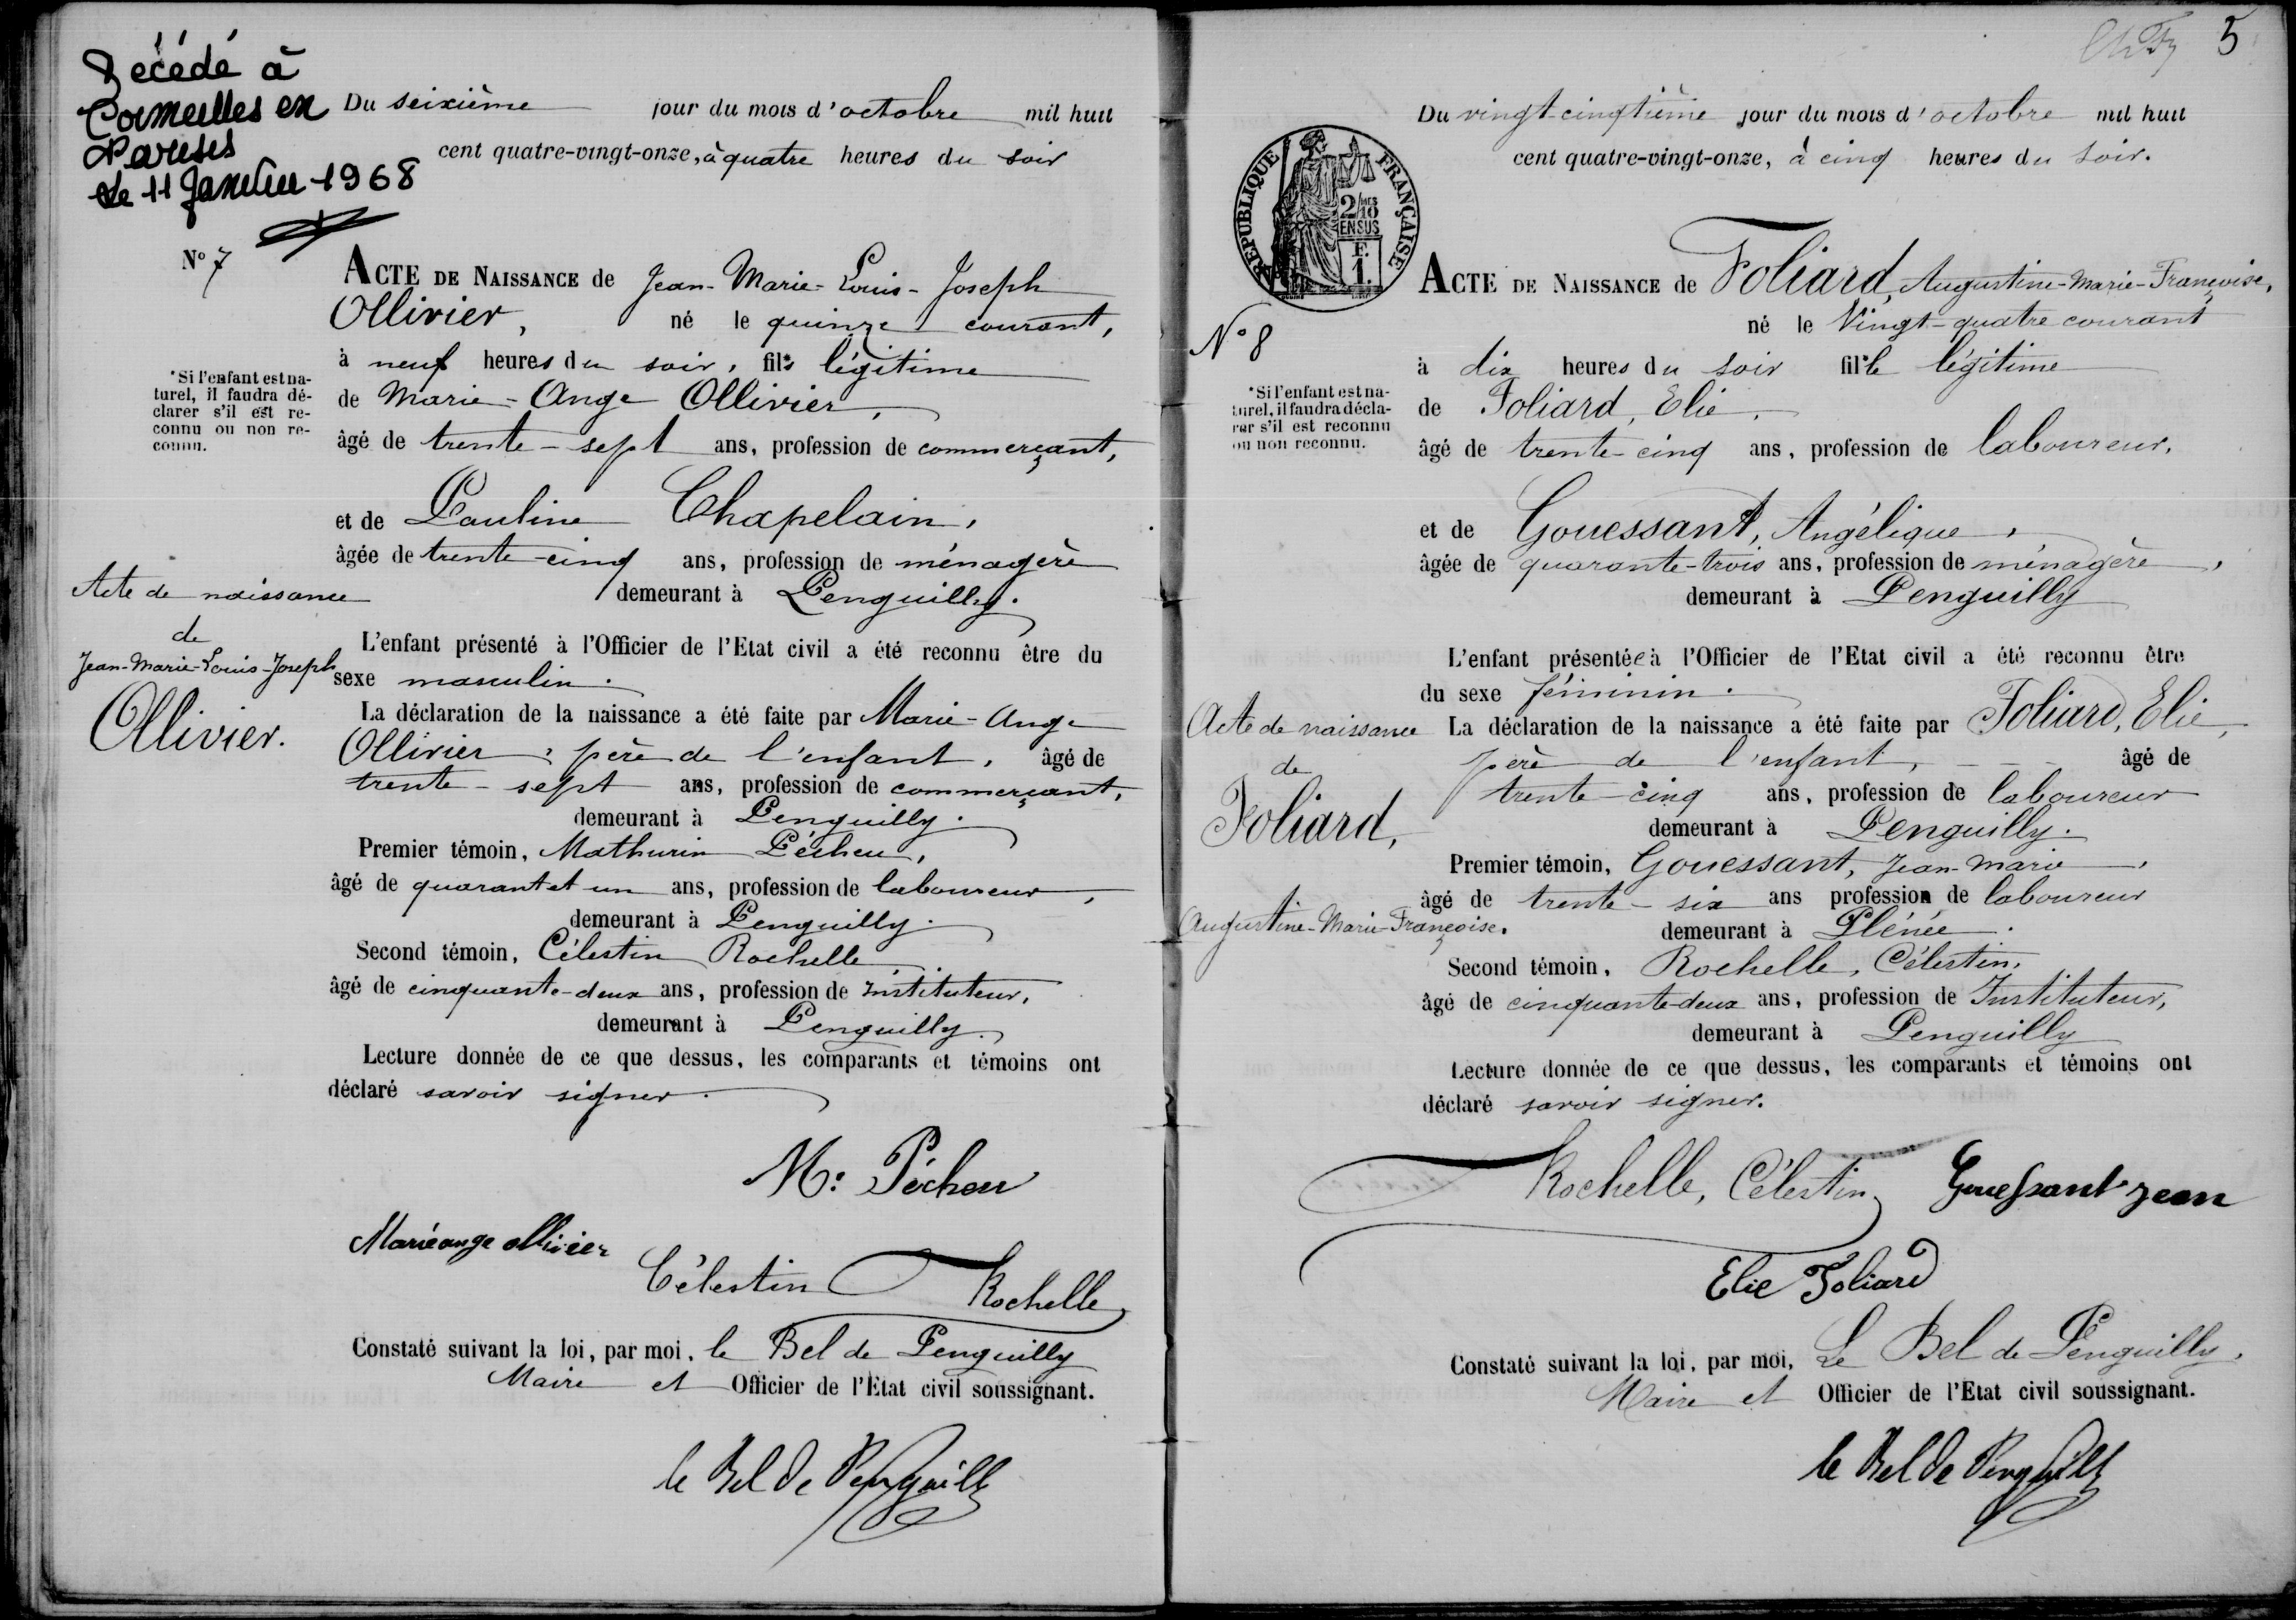 Décédé à
Cormeilles en
Parisis
le 11 Janvier 1968
Du seixième jour du mois d'octobre mil huit
cent quatre-vingt-onze, à quatre heures du soir
No 7
ACTE DE NAISSANCE de Jean-Marie-Louis-Joseph
Ollivier, né le quinze courant,
à neuf heures du soir, fils légitime
*Si l'enfant est na-
turel, il faudra dé-
clarer s'il est re-
connu ou non re-
connu.
de Marie-Ange Ollivier,
âgé de trente-sept ans, profession de commerçant,
et de Pauline Chapelain,
âgée de trente-cinq ans, profession de ménagère
demeurant à Penguilly.
Acte de naissance
de
Jean-Marie-Louis-Joseph
Ollivier.
L'enfant présenté à l'Officier de l'Etat civil a été reconnu être du
sexe masculin.
La déclaration de la naissance a été faite par Marie-Ange
Ollivier, père de l'enfant, âgé de
trente-sept ans, profession de commerçant,
demeurant à Penguilly.
Premier témoin, Mathurin Pécheu,
âgé de quarantet un ans, profession de laboureur,
demeurant à Penguilly.
Second témoin, Célestin Rochelle
âgé de cinquante-deux ans, profession de Instituteur,
demeurant à Penguilly.
Lecture donnée de ce que dessus, les comparants et témoins ont
déclaré savoir signer.
M: Pécheu
Marieange ollivier
Célestin Rochelle
Constaté suivant la loi, par moi, le Bel de Penguilly
Maire et Officier de l'Etat civil soussignant.
le Bel de Penguilly
5
Du vingt-cinqtième jour du mois d'octobre mil huit
cent quatre-vingt-onze, à cinq heures du soir.
REPUBLIQUE FRANÇAISE
2/10
EN SUS
F.
1.
ACTE DE NAISSANCE de Foliard, Augustine-Marie-Françoise,
né le Vingt-quatre courant
N° 8
à dix heures du soir fille légitime
*Si l'enfant est na-
turel, il faudra décla-
rer s'il est reconnu
ou non reconnu.
de Foliard, Elie,
âgé de trente-cinq ans, profession de laboureur,
et de Gouessant, Angélique,
âgée de quarante-trois ans, profession de ménagère,
demeurant à Penguilly
L'enfant présentée à l'Officier de l'Etat civil a été reconnu être
du sexe féminin.
Acte de naissance
de
Foliard,
Augustine-Marie-Françoise.
La déclaration de la naissance a été faite par Foliard, Elie,
père de l'enfant, âgé de
trente-cinq ans, profession de laboureur
demeurant à Penguilly.
Premier témoin, Gouessant, Jean-Marie,
âgé de trente-six ans profession de laboureur
demeurant à Plénée.
Second témoin, Rochelle, Célestin,
âgé de cinquante-deux ans, profession de Instituteur,
demeurant à Penguilly
Lecture donnée de ce que dessus, les comparants et témoins ont
déclaré savoir signer.
Rochelle, Célestin Gouessant jean
Elie Foliard
Constaté suivant la loi, par moi, Le Bel de Penguilly,
Maire et Officier de l'Etat civil soussignant.
le Bel de Penguilly